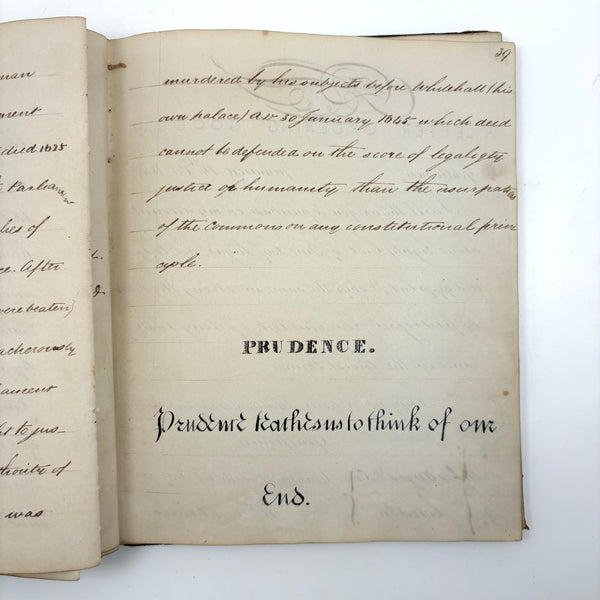 man
ment
died 1625
Parliam
ies of
ce. After
were beaten)
acherously
liament
ht to jus-
thority of
was
39
murdered by his subjects before Whitehall (his
own palace) AD 30 January 1645 which deed
cannot be defended on the score of legality
justice or humanity than the usurpation
of the commons on any constitutional prin
cple.
PRUDENCE.
Prudence teaches us to think of our
End.